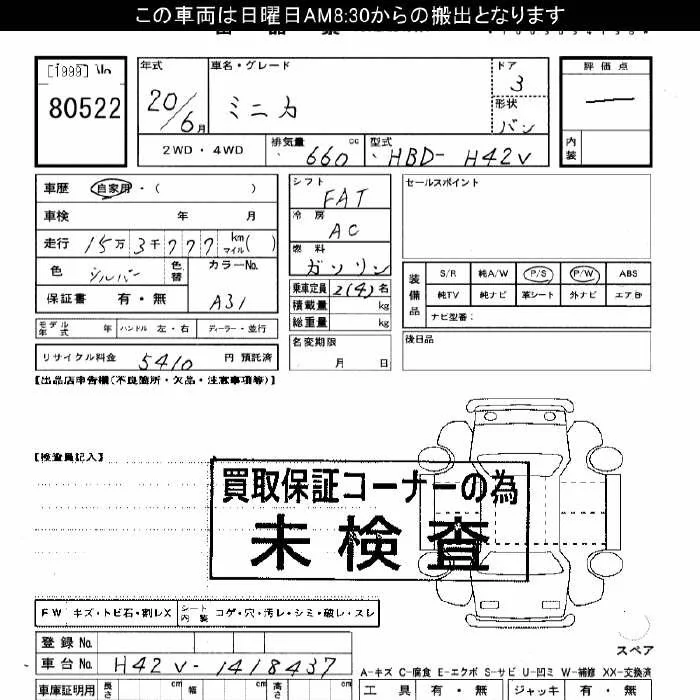 この車両は日曜日AM8:30からの搬出となります
[1999] No
80522
年式 20/6月
車名・グレード ミニカ
ドア 3
形状 バン
評価点
内装
2WD・4WD
排気量 660 cc
型式 HBD-H42V
車歴 自家用・( )
車検 年 月
走行 15万3千777 km マイル( )
色 シルバー 色替
カラーNo. A31
保証書 有・無
シフト FAT
冷房 AC
燃料 ガソリン
乗車定員 2(4)名
積載量 kg
総重量 kg
名変期限 月 日
セールスポイント
装備品
S/R 純A/W P/S P/W ABS
純TV 純ナビ 革シート 外ナビ エアB
ナビ型番:
後日品
モデル年式 年 ハンドル 左・右 ディーラー・並行
リサイクル料金 5410 円 預託済
【出品店申告欄(不良箇所・欠品・注意事項等)】
【検査員記入】
買取保証コーナーの為
未検査
FW キズ・トビ石・割レX シート内装 コゲ・穴・汚レ・シミ・破レ・スレ
登録No.
車台No. H42V-1418437
車庫証明用 長さ cm 幅 cm 高さ cm
スペア
A-キズ C-腐食 E-エクボ S-サビ U-凹ミ W-補修 XX-交換済
工具 有・無 ジャッキ 有・無